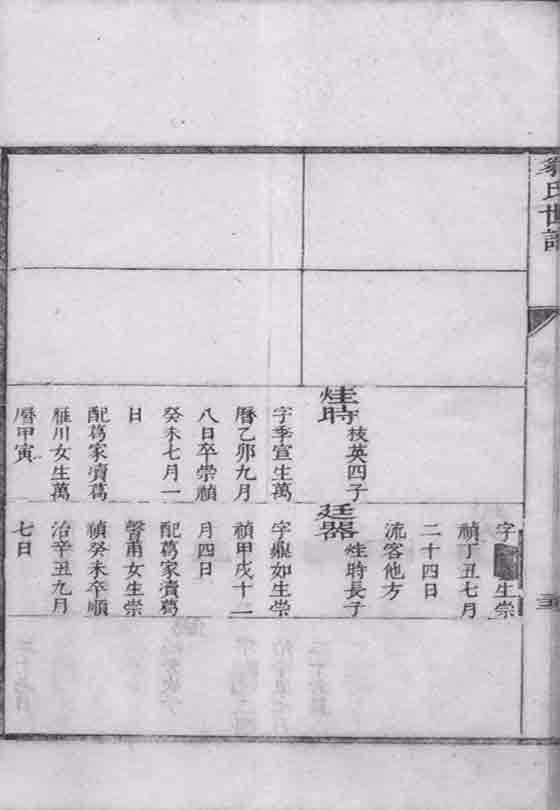 氏世譜
三
烓時
枝英四子
字季宣生萬
曆乙卯九月
八日卒崇禎
癸未七月一
日
配葛家瀆葛
雁川女生萬
曆甲寅
字
生崇
禎丁丑七月
二十四日
流客他方
廷器
烓時長子
字鼎如生崇
禎甲戌十二
月四日
配葛家瀆葛
聲甫女生崇
禎癸未卒順
治辛丑九月
七日